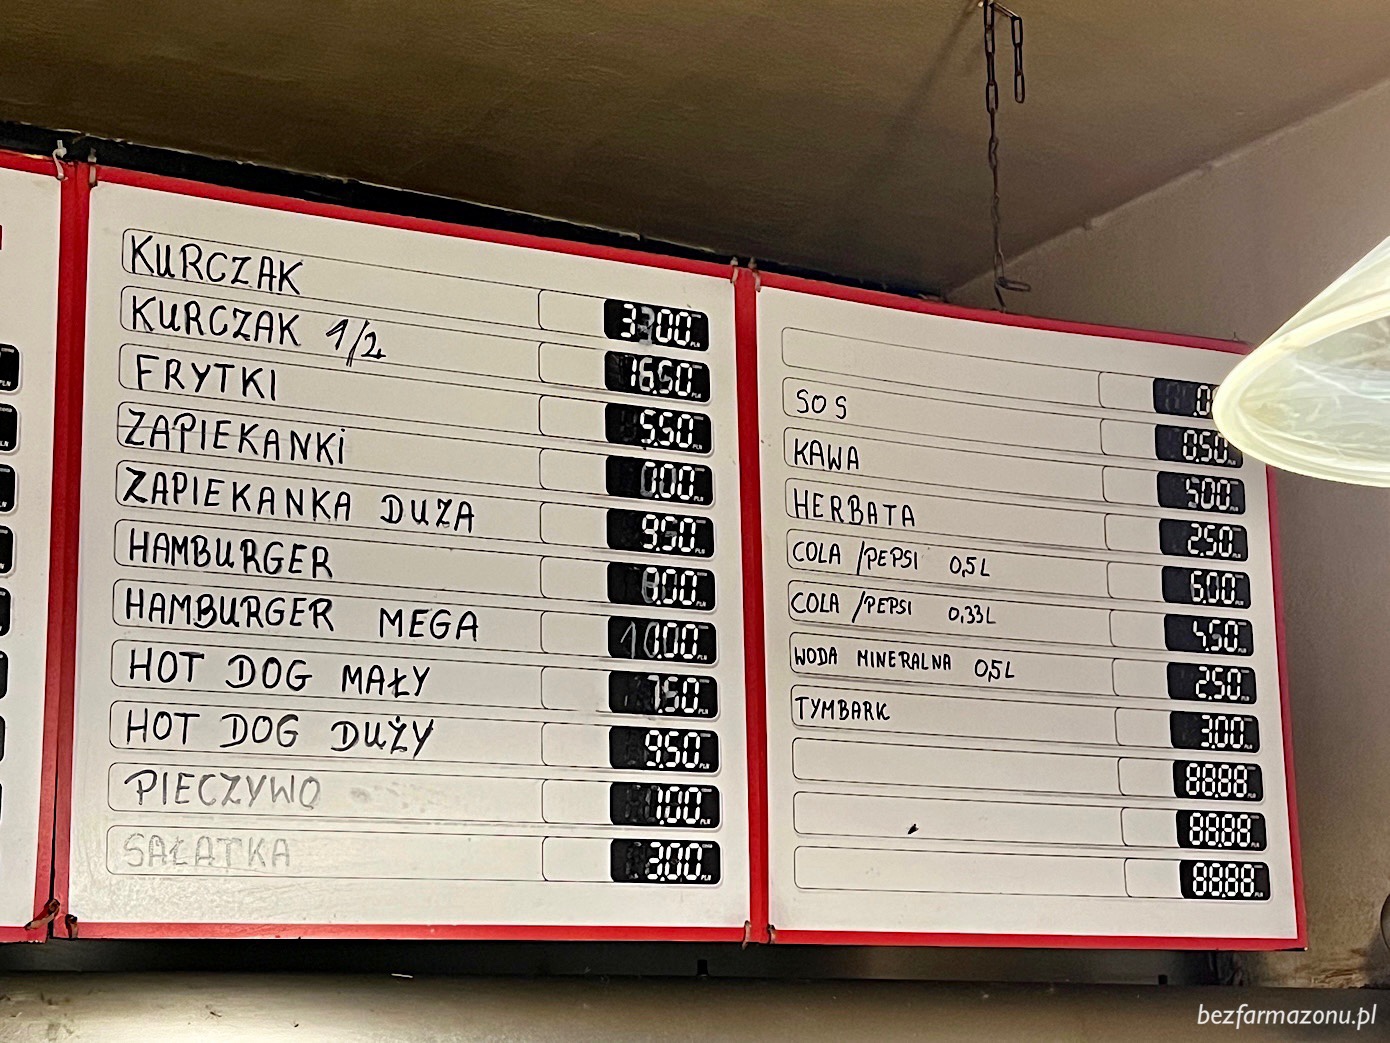 KURCZAK 33.00
KURCZAK 1/2 16.50
FRYTKI 5.50
ZAPIEKANKI 0.00
ZAPIEKANKA DUZA 9.50
HAMBURGER 8.00
HAMBURGER MEGA 10.00
HOT DOG MAŁY 7.50
HOT DOG DUŻY 9.50
PIECZYWO 1.00
SAŁATKA 3.00
SOS 0.50
KAWA 5.00
HERBATA 2.50
COLA /PEPSI 0,5L 6.00
COLA /PEPSI 0,33L 4.50
WODA MINERALNA 0,5L 2.50
TYMBARK 3.00
88.88
88.88
88.88
bezfarmazonu.pl